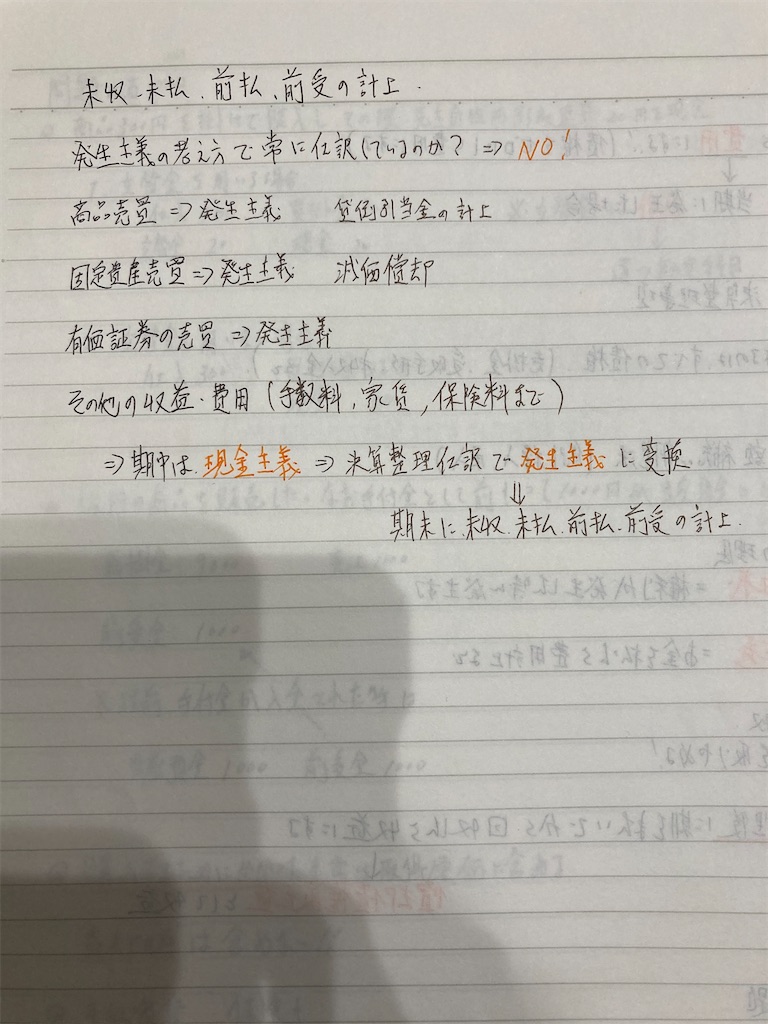 未収、未払、前払、前受の計上.
発生主義の考え方で常に仕訳しているのか? ⇒ NO!
商品売買 ⇒ 発生主義 貸倒引当金の計上
固定資産売買 ⇒ 発生主義 減価償却
有価証券の売買 ⇒ 発生主義
その他の収益・費用(手数料, 家賃, 保険料まで)
⇒ 期中は 現金主義 ⇒ 決算整理仕訳で 発生主義 に変換
⇓
期末に未収、未払、前払、前受の計上.